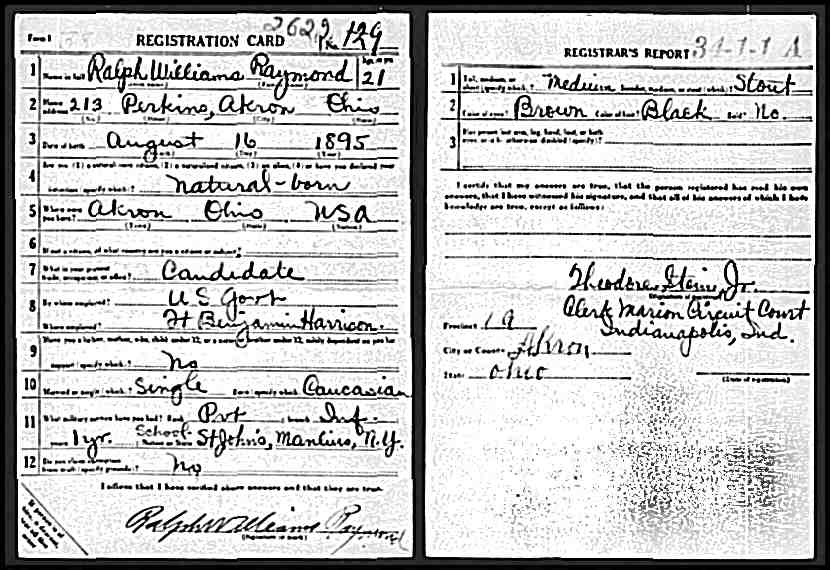 2629
Form 1 REGISTRATION CARD No. 129
1 Name in full Ralph Williams Raymond Age, in yrs 21
2 Home address 213 Perkins, Akron Ohio
(No.) (Street) (City) (State)
3 Date of birth August 16 1895
(Month) (Day) (Year)
4 Are you (1) a natural-born citizen, (2) a naturalized citizen, (3) an alien, (4) or have you declared your
intention (specify which)? natural-born
5 Where were you born? Akron Ohio USA
(Town) (State) (Nation)
6 If not a citizen, of what country are you a citizen or subject?
7 What is your present trade, occupation, or office? Candidate
8 By whom employed? U S Govt
Where employed? Ft Benjamin Harrison.
9 Have you a father, mother, wife, child under 12, or a sister or brother under 12, solely dependent on you for
support (specify which)? No
10 Married or single (which)? Single Race (specify which)? Caucasian
11 What military service have you had? Rank Pvt ; branch Inf.
years 1 yr. School St John's, Manlius, N.Y.
12 Do you claim exemption from draft (specify grounds)? No
I affirm that I have verified above answers and that they are true.
Ralph Williams Raymond
(Signature or mark)
REGISTRAR'S REPORT 34-1-1 A
1 Tall, medium, or short (specify which)? Medium Slender, medium, or stout (which)? Stout
2 Color of eyes? Brown Color of hair? Black Bald? No.
3 Has person lost arm, leg, hand, foot, or both
eyes, or is he otherwise disabled (specify)?
I certify that my answers are true, that the person registered has read his own
answers, that I have witnessed his signature, and that all of his answers of which I have
knowledge are true, except as follows:
Theodore Stein, Jr.
(Signature of registrar)
Clerk Marion Circuit Court
Precinct 19 Indianapolis, Ind.
City or County Akron
State Ohio
(Date of registration)